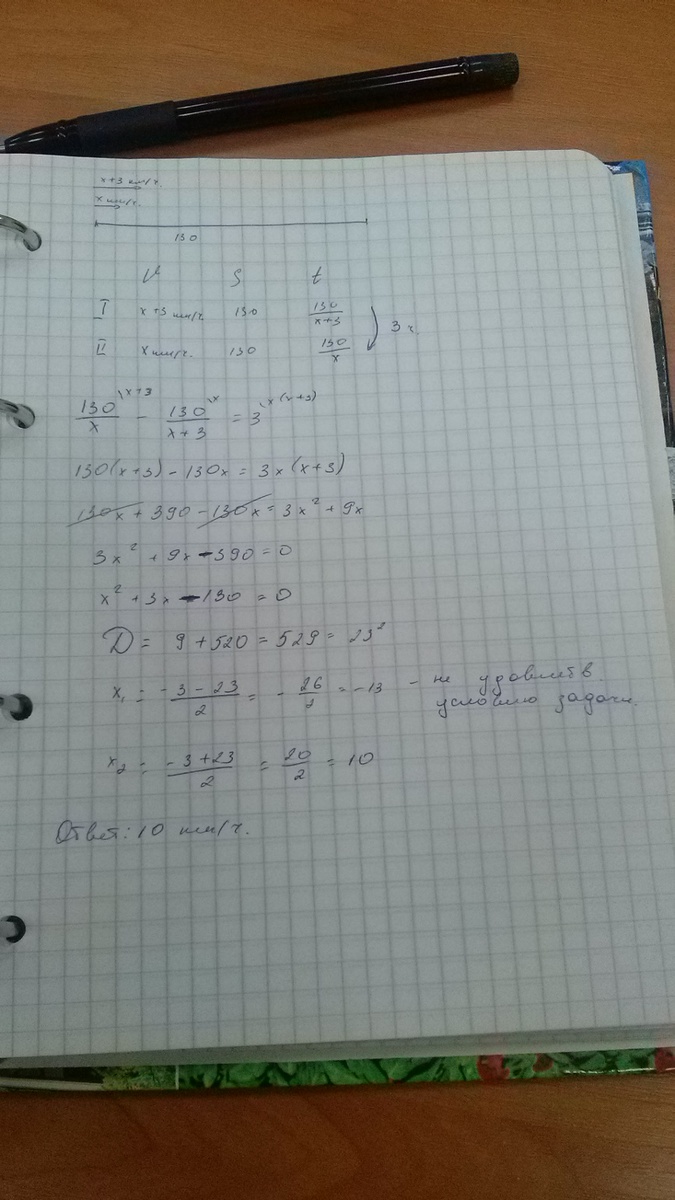 x+3 км/ч.
x км/ч.
130
V S t
I x+3 км/ч. 130 130/(x+3)
3 ч.
II x км/ч. 130 130/x
130/x \x+3 − 130/(x+3) \x = 3 \x(x+3)
130(x+3) − 130x = 3x(x+3)
130x + 390 − 130x = 3x² + 9x
3x² + 9x − 390 = 0
x² + 3x − 130 = 0
D = 9 + 520 = 529 = 23²
x₁ = (−3 − 23)/2 = −26/2 = −13 – не удовлетв.
условию задачи.
x₂ = (−3 + 23)/2 = 20/2 = 10
Ответ: 10 км/ч.